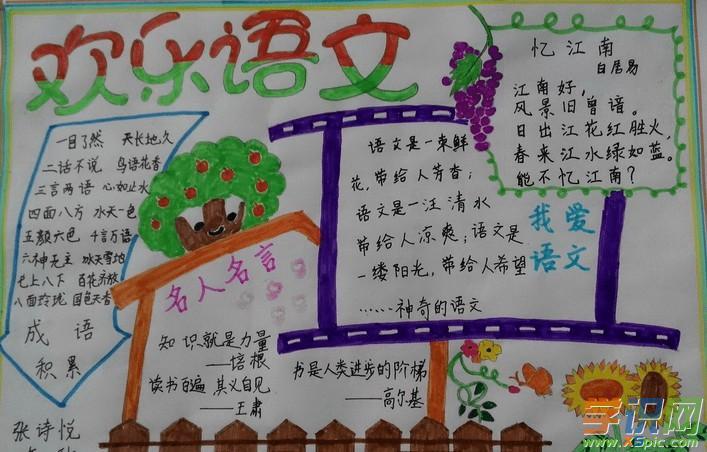 欢乐语文
一目了然 天长地久
二话不说 鸟语花香
三言两语 心如止水
四面八方 水天一色
五颜六色 千言万语
六神无主 冰天雪地
七上八下 百花齐放
八面玲珑 国色天香
成语
积累
张诗悦
名人名言
知识就是力量
——培根
读书百遍 其义自见
——王肃
书是人类进步的阶梯
——高尔基
语文是一束鲜
花，带给人芳香；
语文是一汪清水
带给人凉爽；语文是
一缕阳光，带给人希望
……神奇的语文
忆江南
白居易
江南好，
风景旧曾谙。
日出江花红胜火，
春来江水绿如蓝。
能不忆江南？
我爱
语文
学识网
www.xspic.com